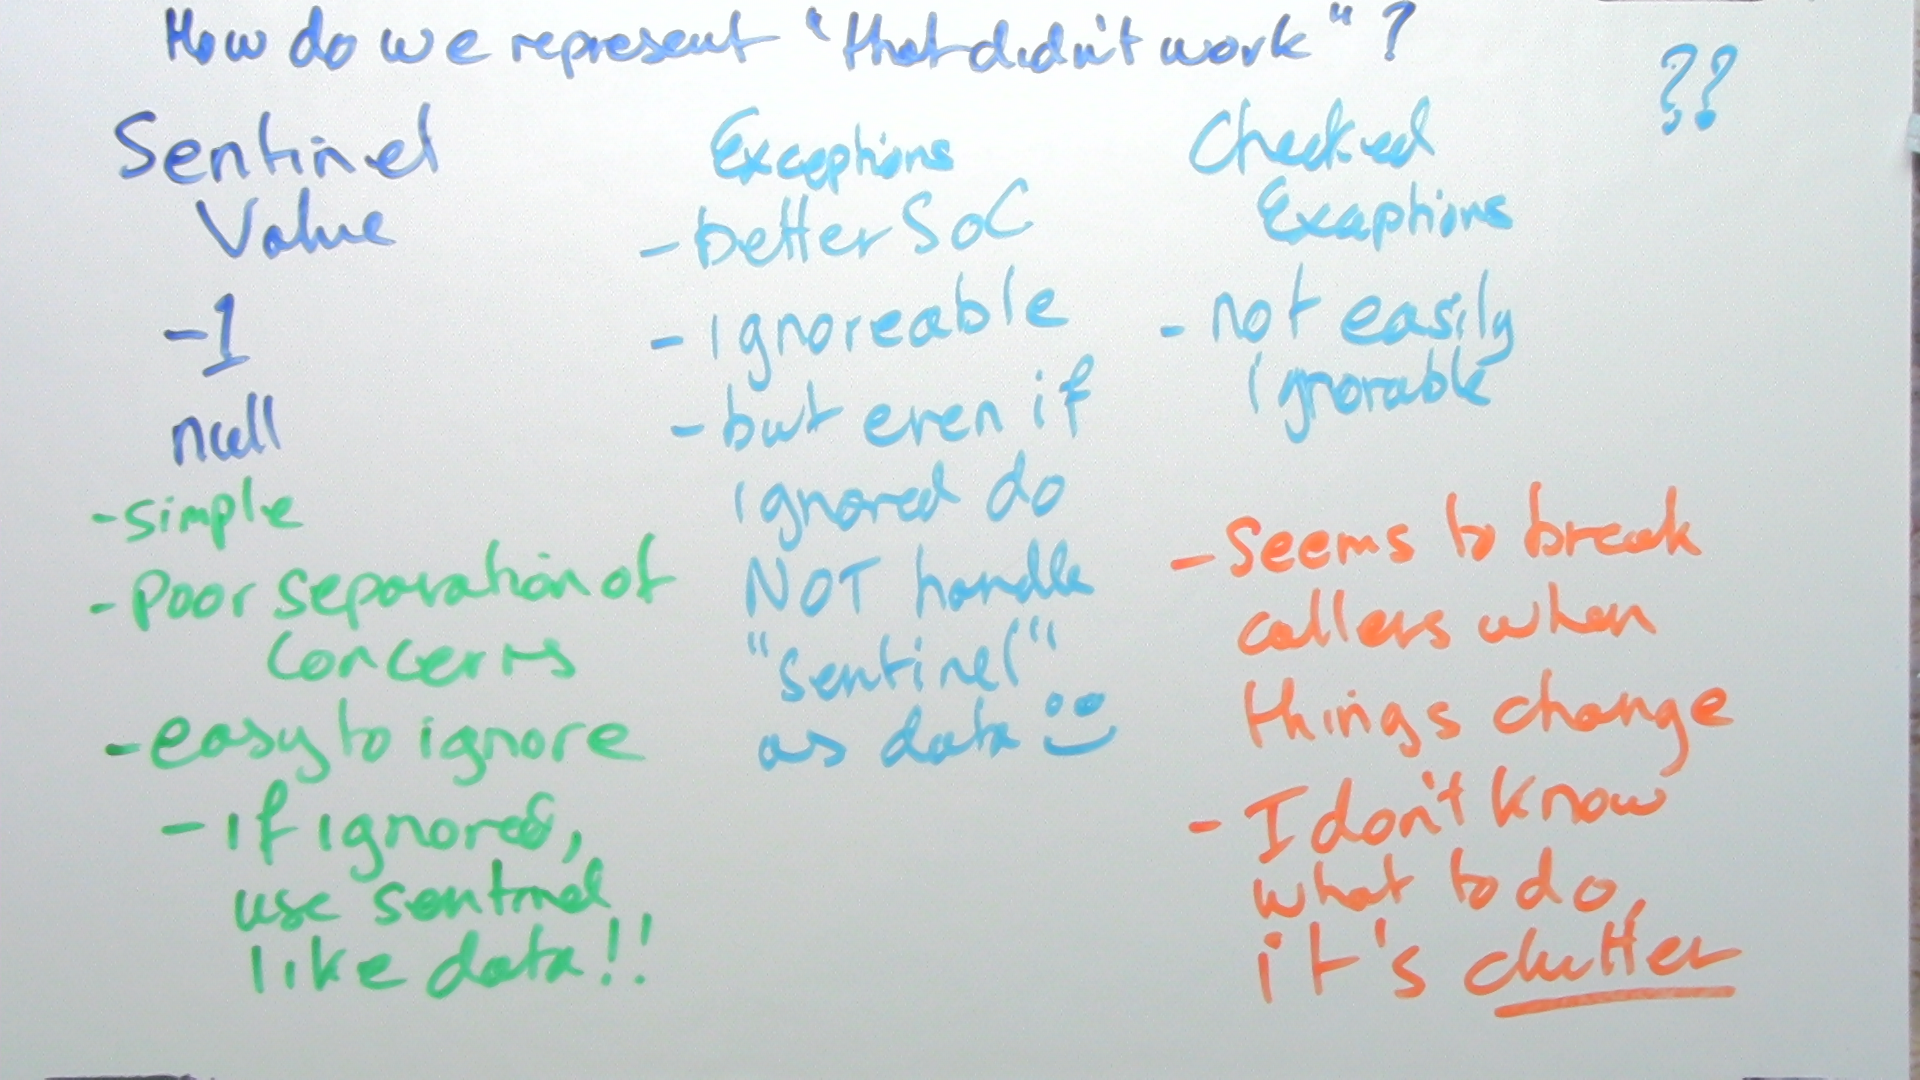 How do we represent "that didn't work"?
??
Sentinel
Value
-1
null
- simple
- Poor separation of
concerns
- easy to ignore
- if ignored,
use sentinel
like data!!
Exceptions
- better SoC
- ignoreable
- but even if
ignored do
NOT handle
"sentinel"
as data
Checked
Exceptions
- not easily
ignorable
- Seems to break
callers when
things change
- I don't know
what to do,
it's clutter